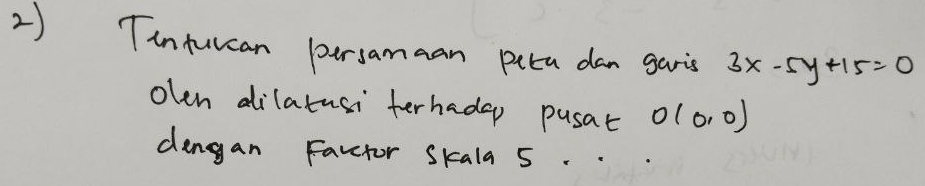 2) Tentukan persamaan peta dan garis 3x - 5y + 15 = 0
oleh dilatasi terhadap pusat O(0,0)
dengan Faktor Skala 5 . . .